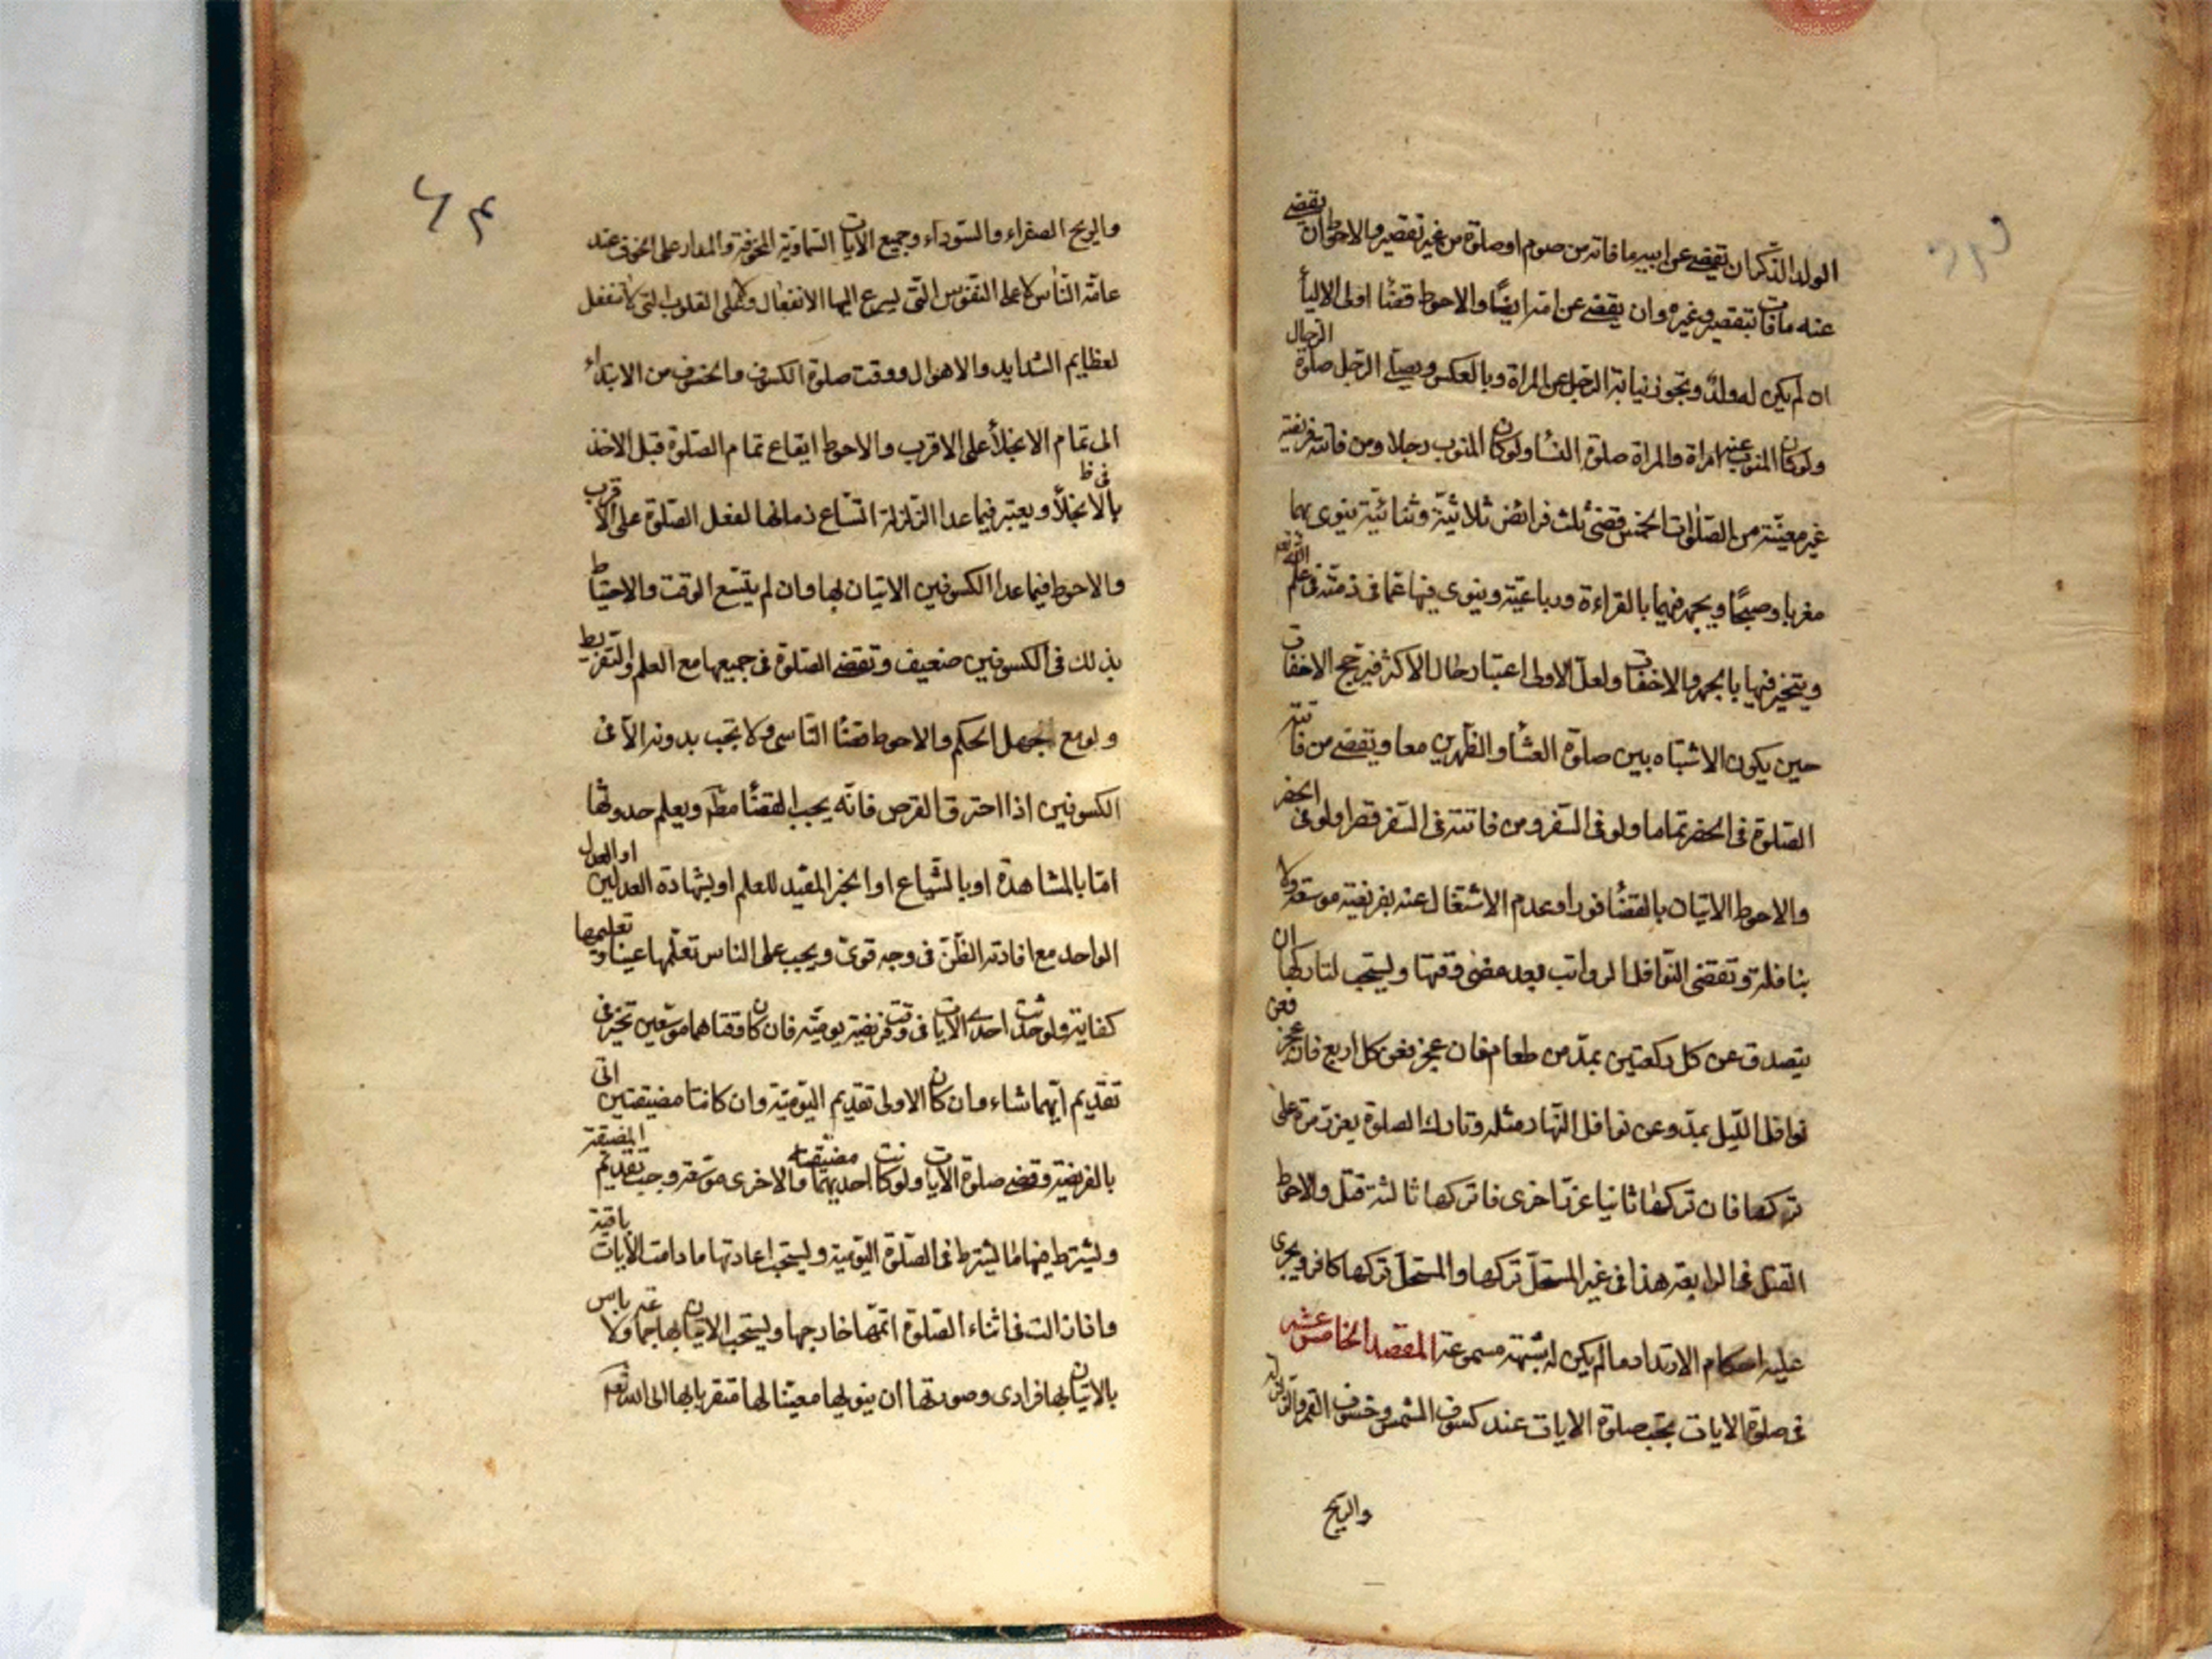 الولد الذكر ان يقضے عن ابيه ما فاته من صوم او صلوة من غير تقصير والاحوط ان يقضے
عنه ما فات بتقصير وغيره وان يقضے عن امه ايضًا والاحوط قضٓا اولى الاليٓا
ان لم يكن له ولدٌ وتجوز نيابة الرجل عن المراة وبالعكس ويصلے الرجل صلوة الرجال
ولو كان المنوب عنه امراة والمراة صلوة النسٓا ولو كان المنوب رجلا ومن فاتته فريضة
غير معيّنة من الصلوات الخمس قضى ثلث فرائض ثلاثيّة وثنائيّة ينوى بهما
مغربا وصبحًا ويجهر فيهما بالقراءة ورباعيّة وينوى فيها عمّا فى ذمّته فى علم الله تعم
ويتخيّر فيها بالجهر والاخفات ولعلّ الاولى اعتبار حال الاكثر فيرجح الاخفات
حين يكون الاشتباه بين صلوة العشٓا والظهرين معا ويقضے من فاتته
الصلوة فى الحضر تماما ولو فى السّفر ومن فاتته فى السّفر قصرا ولو فى الحضر
والاحوط الاتيان بالقضٓا فورا وعدم الاشتغال عنه بفريضة موسّعة ولا
بنافلة وتقضى النّوافل الرواتب بعد مضى وقتها ويستحب لتاركها ان
يتصدق عن كل ركعتين بمدّ من طعام فان عجز فعن كل اربع فان عجز فعن
نوافل الليل بمدّ وعن نوافل النّهار مثله وتارك الصلوة يعزّر مرة على
تركها فان تركها ثانيا عزّر اخرى فان تركها ثالثة قتل والاحوط
القتل فى الرابعة هذا فى غير المستحلّ تركها والمستحلّ تركها كافر ويجرى
عليه احكام الارتداد ما لم يكن له شبهة مسموعة المقصد الخامس عشر
فى صلوة الايات تجب صلوة الايات عند كسوف الشمس وخسوف القمر والزلزلة
والريح
والريح الصفراء والسّوداء وجميع الآيات السّماويّة المخوفة والمدار على الخوف عند
عامّة النّاس لا على النفوس التى يسرع اليها الانفعال ولا على القلوب التى لا تنفعل
لعظايم الشدايد والاهوال ووقت صلوة الكسوف والخسوف من الابتداء
الى تمام الانجلٓا على الاقرب والاحوط ايقاع تمام الصلوة قبل الاخذ
فى ظ
بالانجلٓا ويعتبر فيما عدا الزلزلة اتّساع زمانها لفعل الصّلوة على الاقرب
والاحوط فيما عدا الكسوفين الاتيان بها وان لم يتّسع الوقت والاحتياط
بذلك فى الكسوفين ضعيف وتقضے الصلوة فى جميعها مع العلم والتفريط
ولو مع الجهل الحكم والاحوط قضٓا النّاسى ولا تجب بدونه الّا فى
الكسوفين اذا احترق القرص فانّه يجب القضٓا مطٓ ويعلم حدوثها
امّا بالمشاهدة او بالشياع او الخبر المفيد للعلم او بشهادة العدلين او العدل
الواحد مع افادته الظّنّ فى وجه قوىّ ويجب على الناس تعلّمها عينا وتعليمها
كفاية ولو حدثت احدے الايات فى وقت فريضة يوميّة فان كان وقتاهما موسّعين تخيّر فى
تقديم ايّهما شاء وان كان الاولى تقديم اليوميّة وان كانتا مضيقتين اتى
بالفريضة وقضے صلوة الايات ولو كانت احديهما مضيّقة والاخرى موسّعة وجب تقديم المضيقة
ويشترط فيها ما يشترط فى الصّلوة اليوميّة ويستحبّ اعادتها ما دامت الآيات باقية
واذا زالت فى اثناء الصّلوة اتمّها خارجها ويستحب الاتيان بها جماعة ولا باس
بالاتيان بها فرادى وصورتها ان ينويها معيّنا لها متقربا بها الى الله تعم